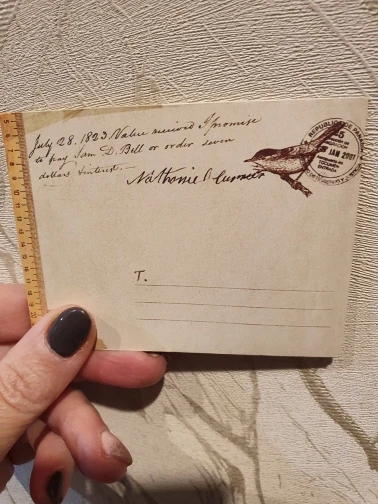 July 28, 1823 Value received I promise
to pay Sam D. Bell or order seven
dollars & interest. —
Nathaniel
REPUBLICA DE PANAMA
25
JAN 2001
T.